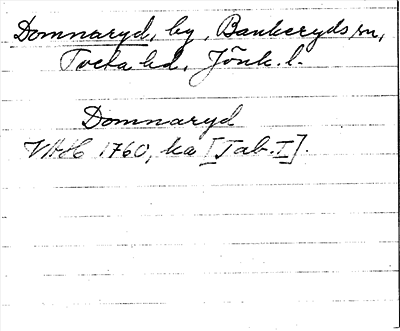 Domnaryd, by, Bankeryds sn,
Tveta hd, Jönk. l.
Domnaryd
VAH 1760, ka [Tab. I].